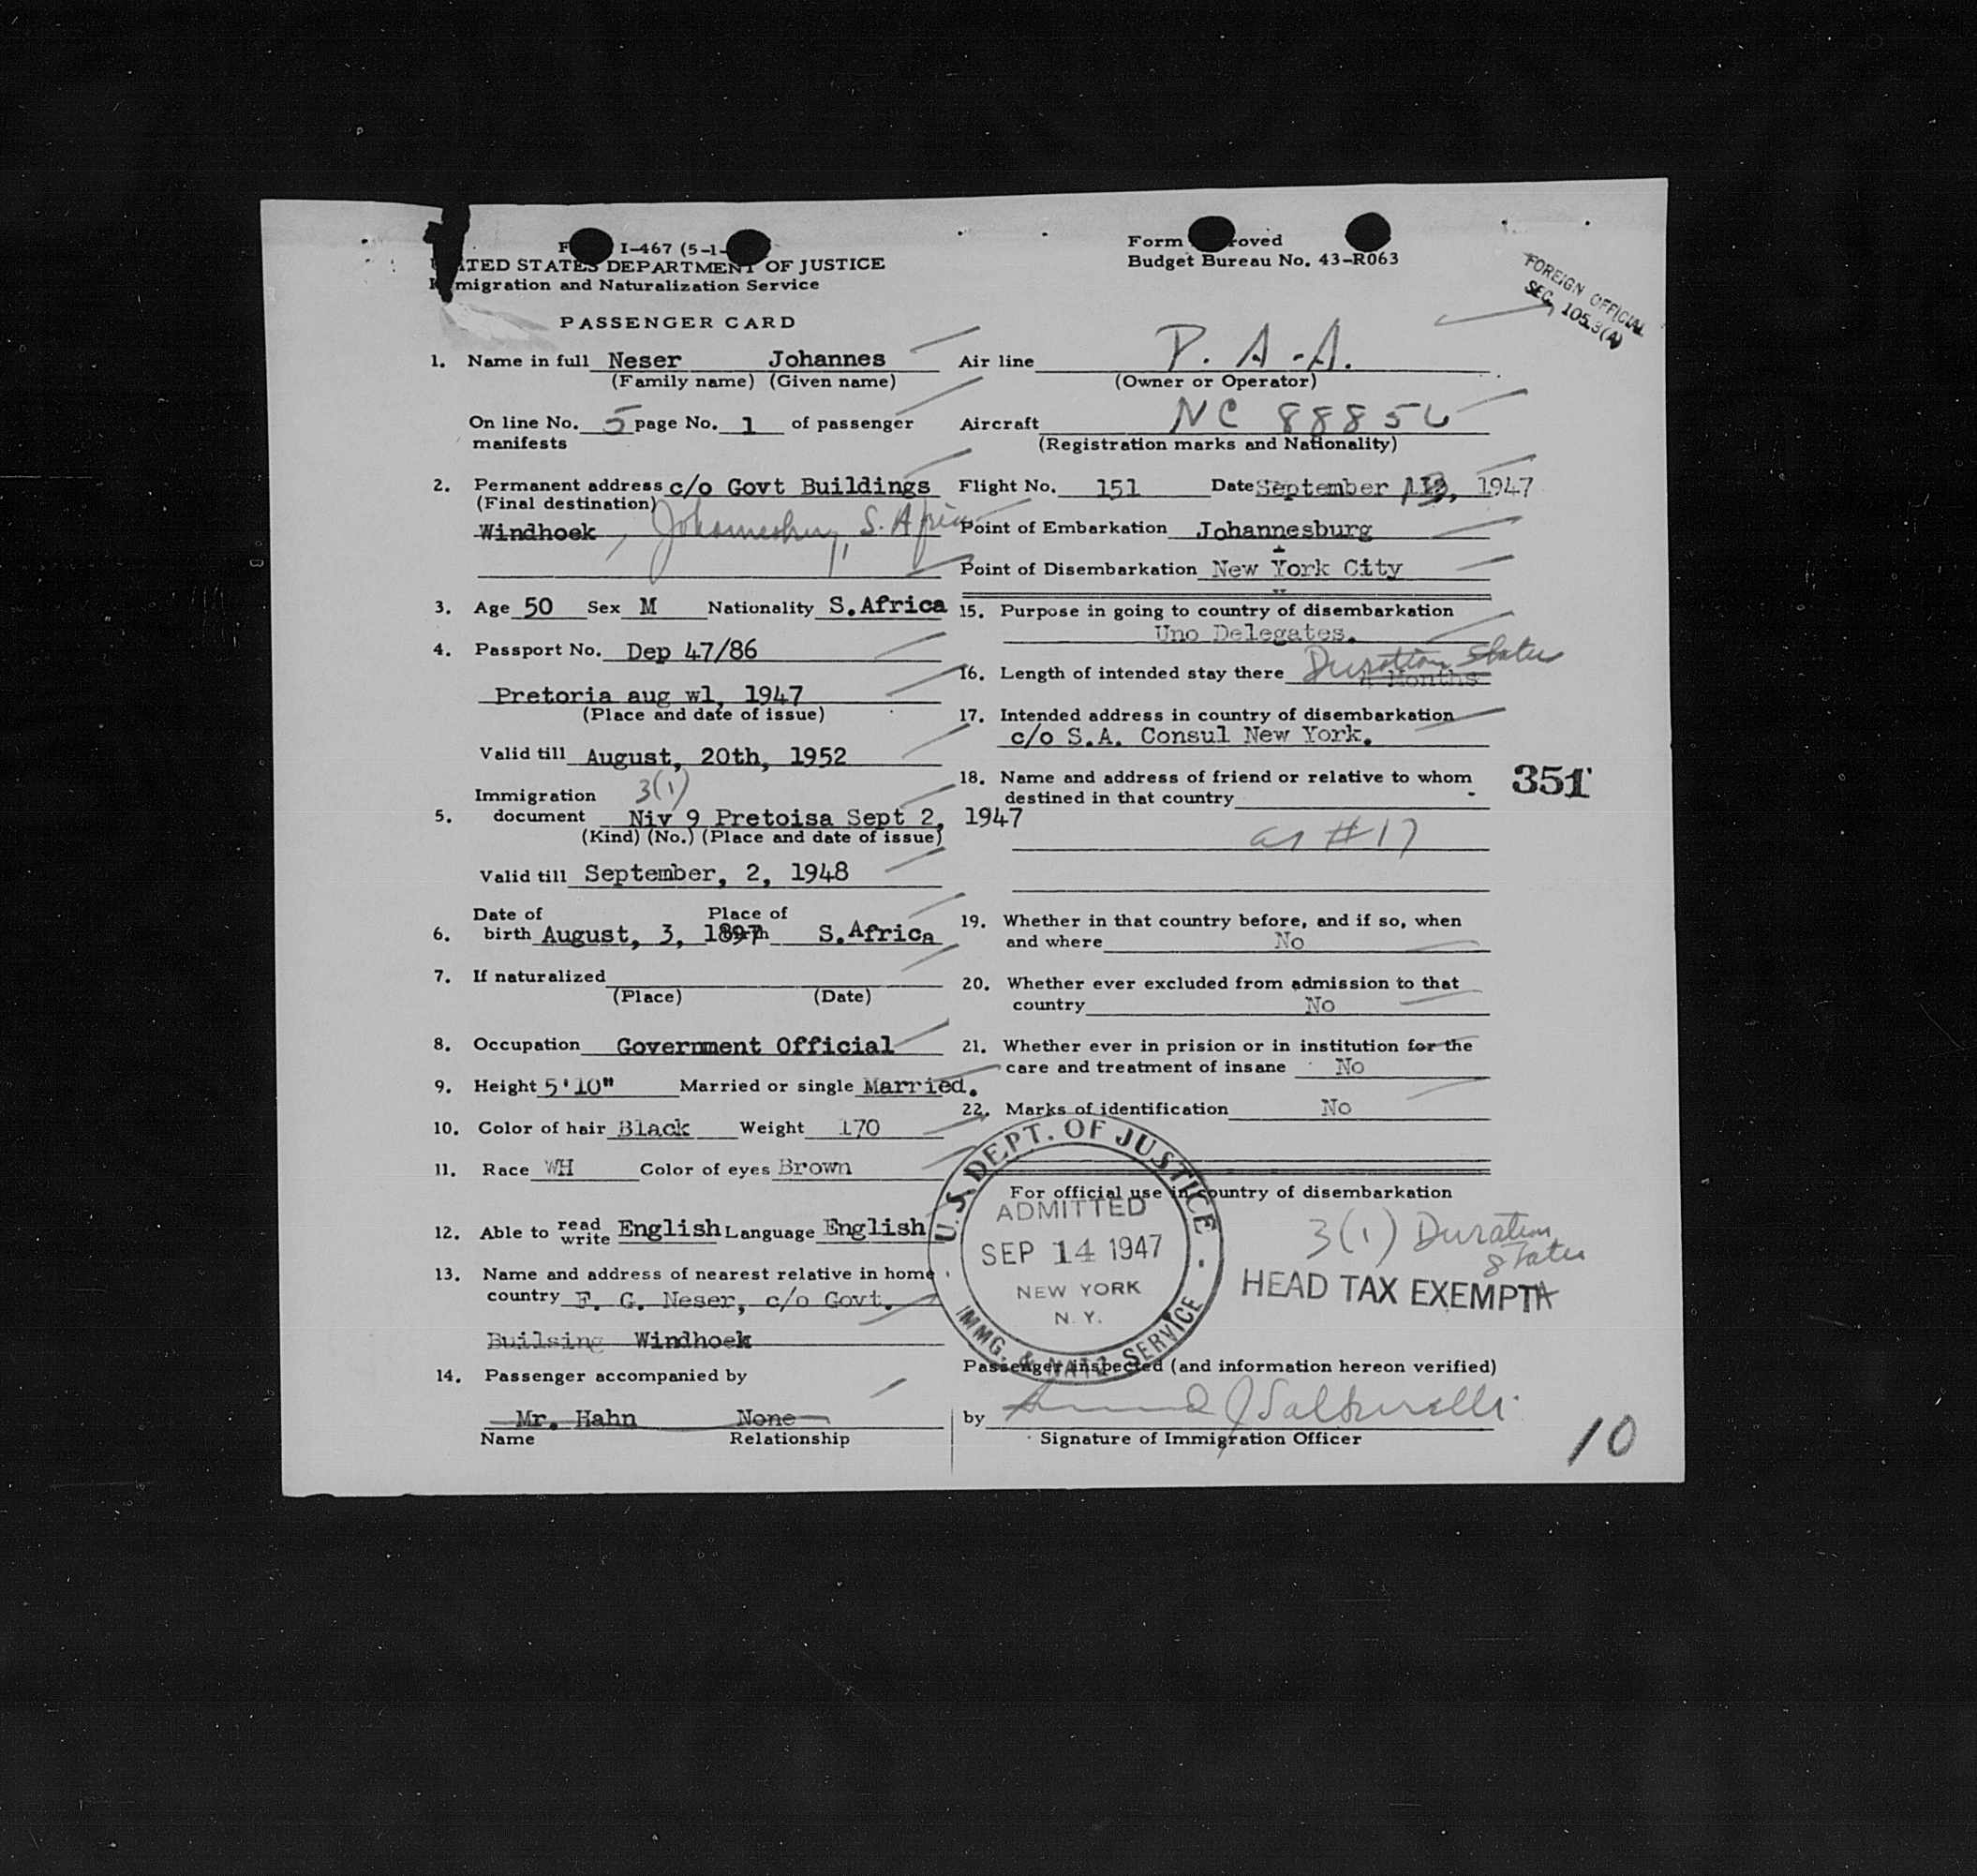 I-467 (5-1-
UNITED STATES DEPARTMENT OF JUSTICE
Immigration and Naturalization Service
PASSENGER CARD
Form Approved
Budget Bureau No. 43-R063
FOREIGN OFFICIAL
SEC. 105.3(A)
1. Name in full Neser Johannes
(Family name) (Given name)
On line No. 5 page No. 1 of passenger
manifests
2. Permanent address c/o Govt Buildings
(Final destination)
Windhoek, Johannesburg, S. Africa
3. Age 50 Sex M Nationality S.Africa
4. Passport No. Dep 47/86
Pretoria aug wl, 1947
(Place and date of issue)
Valid till August, 20th, 1952
Immigration 3(1)
5. document Niv 9 Pretoisa Sept 2, 1947
(Kind) (No.) (Place and date of issue)
Valid till September, 2, 1948
Date of Place of
6. birth August, 3, 1897 birth S.Africa
7. If naturalized
(Place) (Date)
8. Occupation Government Official
9. Height 5'10" Married or single Married.
10. Color of hair Black Weight 170
11. Race WH Color of eyes Brown
12. Able to read write English Language English
13. Name and address of nearest relative in home
country F. G. Neser, c/o Govt.
Builsing Windhoek
14. Passenger accompanied by
Mr. Hahn None
Name Relationship
Air line P. A.A.
(Owner or Operator)
Aircraft NC 88856
(Registration marks and Nationality)
Flight No. 151 Date September 13, 1947
Point of Embarkation Johannesburg
Point of Disembarkation New York City
15. Purpose in going to country of disembarkation
Uno Delegates.
16. Length of intended stay there Duration Status
Months
17. Intended address in country of disembarkation
c/o S.A. Consul New York.
18. Name and address of friend or relative to whom
destined in that country
as #17
351
19. Whether in that country before, and if so, when
and where No
20. Whether ever excluded from admission to that
country No
21. Whether ever in prision or in institution for the
care and treatment of insane No
22. Marks of identification No
For official use in country of disembarkation
U.S. DEPT. OF JUSTICE
ADMITTED
SEP 14 1947
NEW YORK
N. Y.
IMMG. & NATZ. SERVICE
3(1) Duration
Status
HEAD TAX EXEMPT
Passenger inspected (and information hereon verified)
by
Signature of Immigration Officer
10